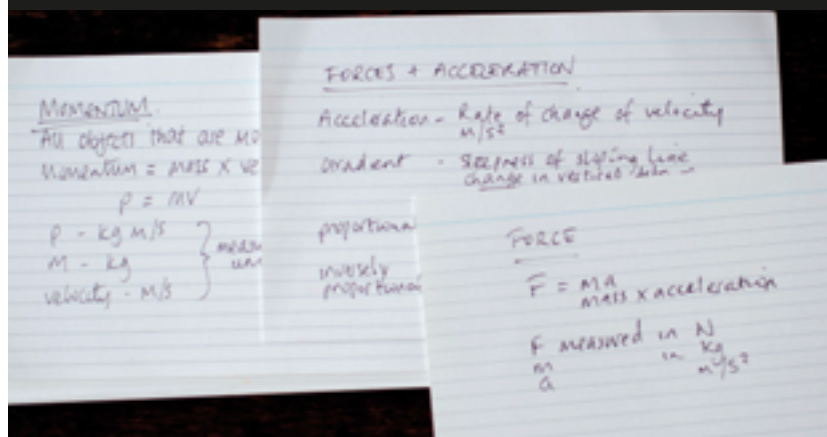 MOMENTUM
All objects that are mo
Momentum = mass x ve
p = mv
p - kg m/s
m - kg
velocity - m/s
meas
un
FORCES + ACCELERATION
Acceleration - Rate of change of velocity
m/s²
Gradient - Steepness of sloping line
change in vertical
proportional
inversely
proportional
FORCE
F = ma
mass x acceleration
F measured in N
m in kg
a m/s²